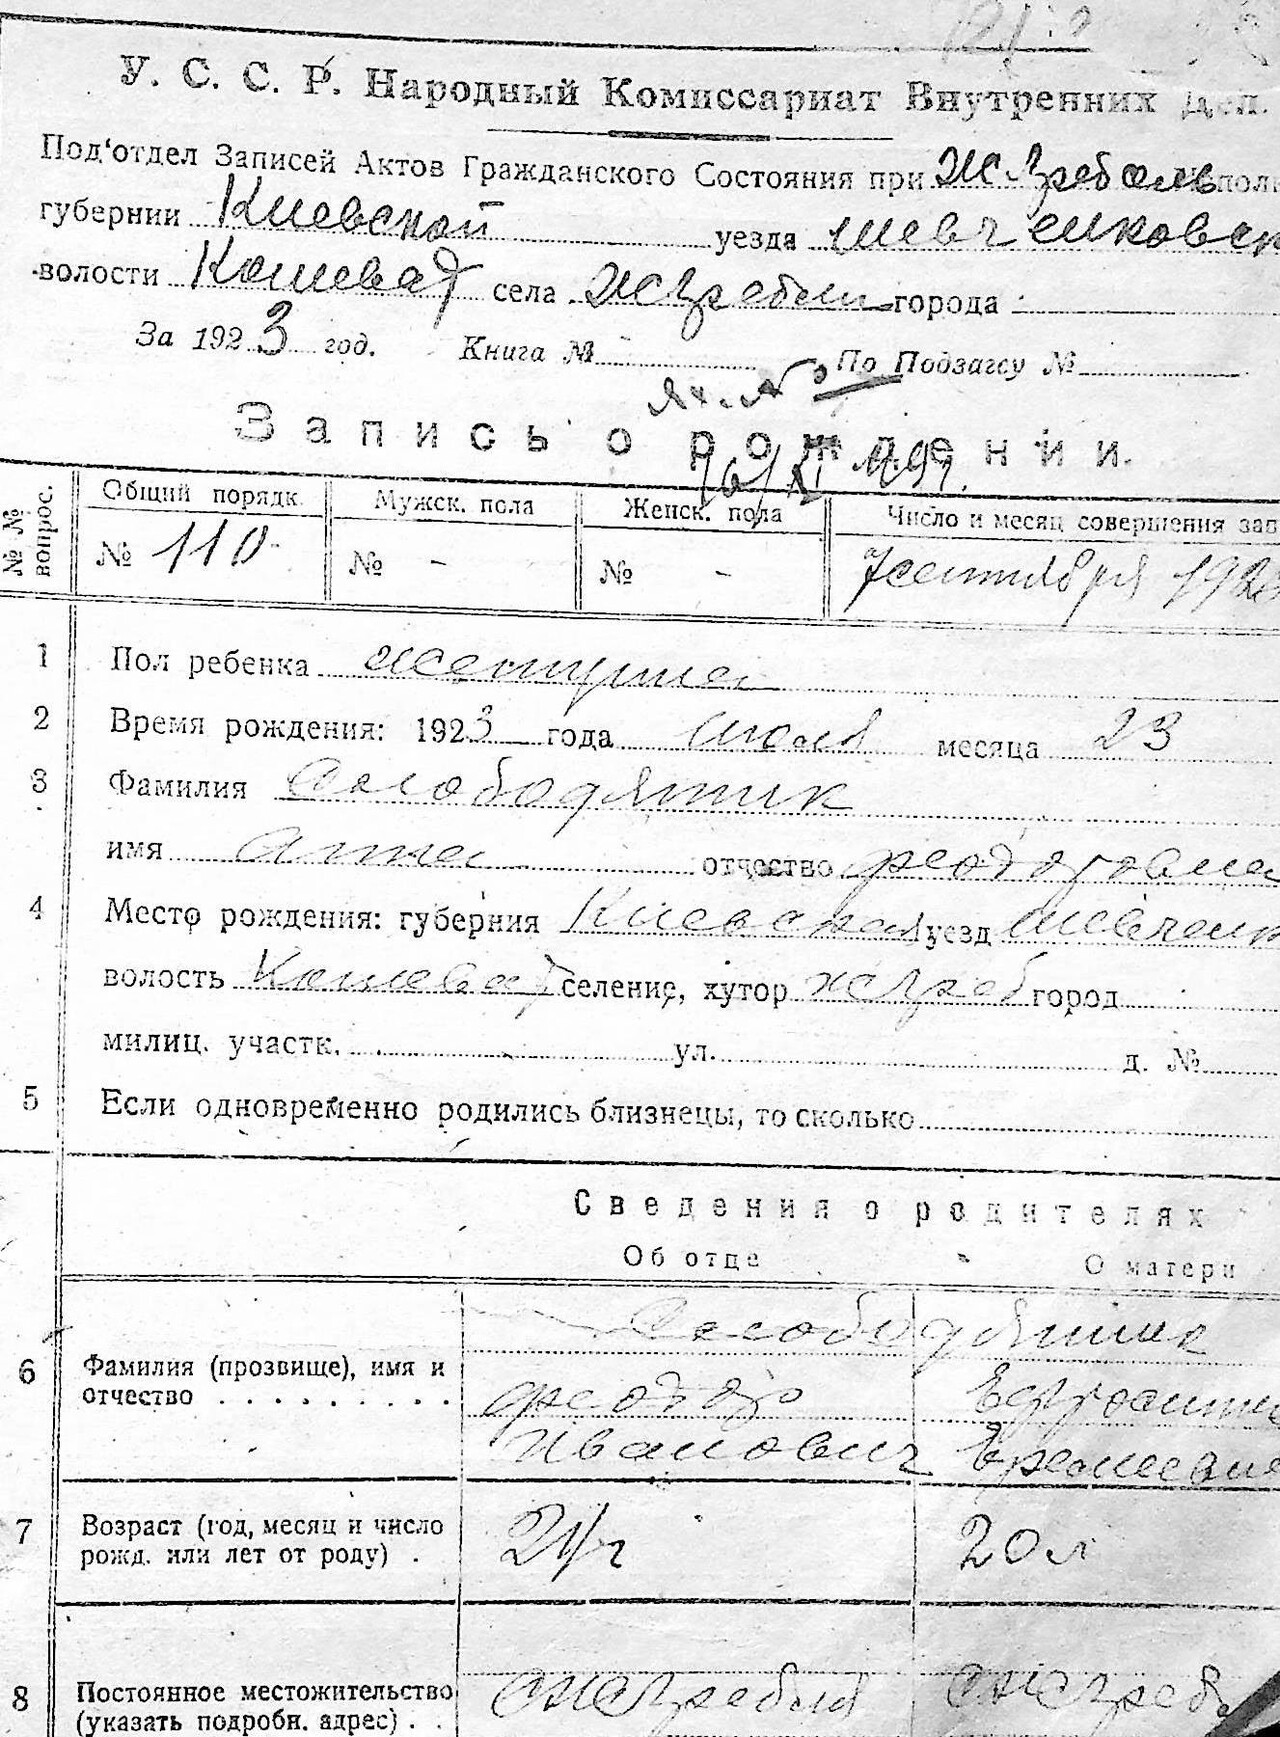 У. С. С. Р. Народный Комиссариат Внутренних Дел.
Под‘отдел Записей Актов Гражданского Состояния при
губернии Киевской уезда Шевченковск
волости Кошеват села города
За 1923 год. Книга № По Подзагсу №
Запись о рождении.
№ № вопрос.
Общий порядк. Мужск. пола Женск. пола Число и месяц совершения зап
№ 110 № - № - 7 сентября
1 Пол ребенка женщина
2 Время рождения: 1923 года июля месяца 23
3 Фамилия Слободяник
имя Анна отчество Феодоровна
4 Место рождения: губерния Киевская уезд Шевченк
волость Кошеват селение, хутор город
милиц. участк. ул. д. №
5 Если одновременно родились близнецы, то сколько
Сведения о родителях
Об отце О матери
Слободяник
6 Фамилия (прозвище), имя и
отчество Феодор
Иванович
7 Возраст (год, месяц и число
рожд. или лет от роду) 20 л
8 Постоянное местожительство
(указать подробн. адрес)